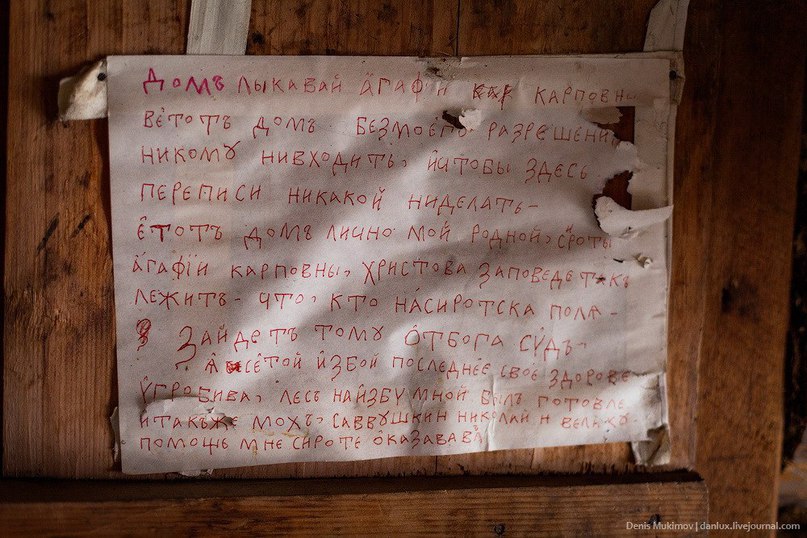 Домъ лыкавай а́гафїи карповны
ве́тотъ домъ безмоего разрешени
никому нивходить, и҆чтобы здесь
переписи никакой ниделать-
е́тотъ домъ лично мой родной, сироты
а҆гафїи карповны, христова заповеде такъ
лежитъ- что, кто на́сиротска пола-
зайдетъ тому о́тбога су́дъ-
а҆ се́той и҆збой последнее свое здорове
у҆гробива, лесъ на́избу мной былъ готовле
и҆такъже мохъ, саввушкин николай и велику
помощь мне сироте о҆казавава
Denis Mukimov | danlux.livejournal.com